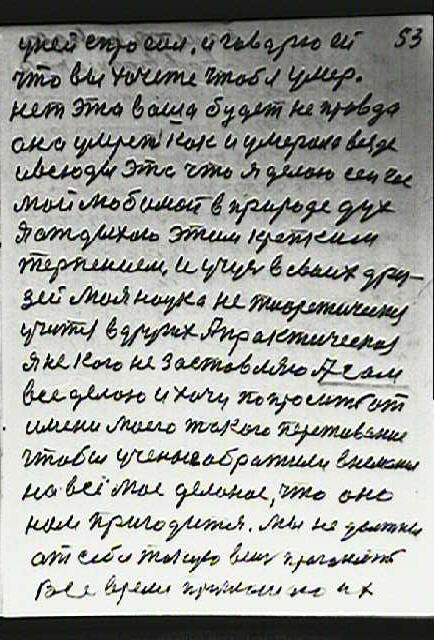 у ней спросил, и говарю ей 53
что вы хочете чтобы умер.
нет эта ваша будет не правда
она умрет как и умерала везде
и всюды Это что я делаю сей час
мой любимой в природе дух
я атдыхаю этим крепким
терпением, и учус в сваих дру-
зей Моя наука не теоретическая
учится в других А практическая
я не кого не заставляю Я сам
все делаю и хочу попросить от
имени моего такого
чтобы ученые обратили внемания
на всё мое деланое, что оно
нам пригодится. Мы не должны
от себя такую вещ праганять
Все время их